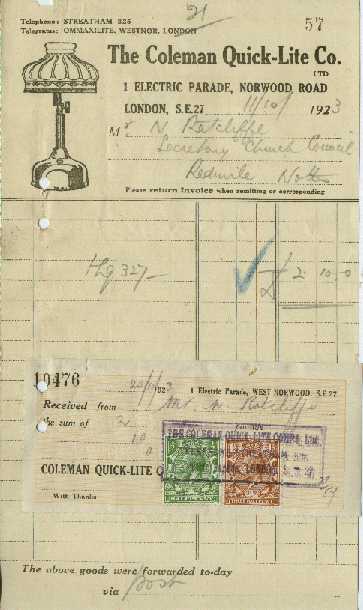 21
57
Telephone: STREATHAM 325
Telegrams: OMMANILITE, WESTNOR, LONDON
The Coleman Quick-Lite Co.
LTD
1 ELECTRIC PARADE, NORWOOD ROAD
LONDON, S.E.27 11/10/ 1923
Mr N. Ratcliffe
Secretary Church Council
Redmile Notts
Please return Invoice when remitting or corresponding
Hq 327
£ 2 10 0
19476
1 Electric Parade, WEST NORWOOD, S.E.27
Received from Mr N Ratcliffe
the sum of 2
10
0
THE COLEMAN QUICK-LITE COMPY., Ltd.
COLEMAN QUICK-LITE
With Thanks
The above goods were forwarded to-day
via post